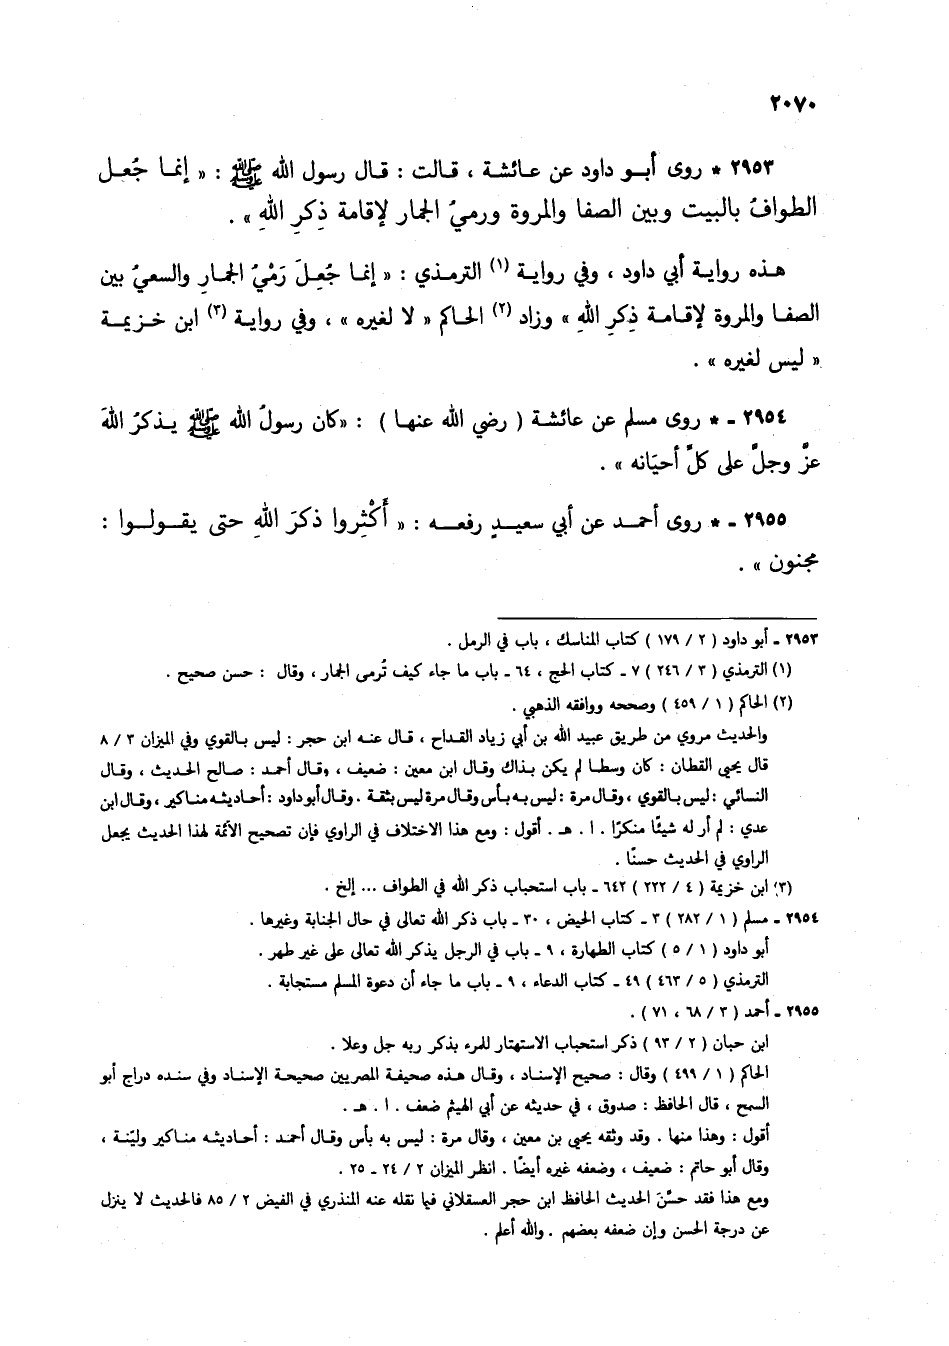 ٢٠٧٠
٢٩٥٣ * روى أبـو داود عن عـائشـة ، قـالت : قـال رسول الله ﷺ : « إنمـا جُعـل
الطوافُ بالبيت وبين الصفا والمروة ورميُ الجمار لإقامة ذِكرِ اللهِ » .
هـذه روايـة أبي داود ، وفي روايـة (١) الترمـذي : « إنمـا جُعِـلَ رَمْيُ الجمـارِ والسعيُ بين
الصفـا والمروة لإقـامـة ذِكرِ اللهِ » وزاد (٢) الحـاكم « لا لغيره » ، وفي روايـة (٣) ابن خـزيمـة
« ليس لغيره » .
٢٩٥٤ ـ * روى مسلم عن عائشـة ( رضي الله عنهـا ) : «كان رسولُ الله ﷺ يـذكرُ اللهَ
عزَّ وجلَّ على كلِّ أحيَانه » .
٢٩٥٥ ـ * روى أحمـد عن أبي سعيـدٍ رفعـه : « أَكْثِروا ذكرَ اللهِ حتى يقـولـوا :
مجنون » .
٢٩٥٣ ـ أبو داود ( ٢ / ١٧٩ ) كتاب المناسك ، باب في الرمل .
(١) الترمذي ( ٣ / ٢٤٦ ) ٧ ـ كتاب الحج ، ٦٤ ـ باب ما جاء كيف تُرمى الجمار ، وقال : حسن صحيح .
(٢) الحاكم ( ١ / ٤٥٩ ) وصححه ووافقه الذهبي .
والحديث مروي من طريق عبيد الله بن أبي زياد القداح ، قال عنه ابن حجر : ليس بالقوي وفي الميزان ٣ / ٨
قال يحيى القطان : كان وسطا لم يكن بذاك وقال ابن معين : ضعيف ، وقال أحمد : صالح الحديث ، وقال
النسائي : ليس بالقوي ، وقال مرة : ليس به بأس وقال مرة ليس بثقة . وقال أبو داود : أحاديثه مناكير ، وقال ابن
عدي : لم أر له شيئًا منكرًا . ا . هـ . أقول : ومع هذا الاختلاف في الراوي فإن تصحيح الأئمة لهذا الحديث يجعل
الراوي في الحديث حسنًا .
(٣) ابن خزيمة ( ٤ / ٢٢٢ ) ٦٤٢ ـ باب استحباب ذكر الله في الطواف ... إلخ .
٢٩٥٤ ـ مسلم ( ١ / ٢٨٢ ) ٣ ـ كتاب الحيض ، ٣٠ ـ باب ذكر الله تعالى في حال الجنابة وغيرها .
أبو داود ( ١ / ٥ ) كتاب الطهارة ، ٩ ـ باب في الرجل يذكر الله تعالى على غير طهر .
الترمذي ( ٥ / ٤٦٣ ) ٤٩ ـ كتاب الدعاء ، ٩ ـ باب ما جاء أن دعوة المسلم مستجابة .
٢٩٥٥ ـ أحمد ( ٣ / ٦٨ ، ٧١ ) .
ابن حبان ( ٢ / ٩٣ ) ذكر استحباب الاستهتار للمرء بذكر ربه جل وعلا .
الحاكم ( ١ / ٤٩٩ ) وقال : صحيح الإسناد ، وقال هذه صحيفة المصريين صحيحة الإسناد وفي سنده دراج أبو
السمح ، قال الحافظ : صدوق ، في حديثه عن أبي الهيثم ضعف . ا . هـ .
أقول : وهذا منها . وقد وثقه يحيى بن معين ، وقال مرة : ليس به بأس وقال أحمد : أحاديثه مناكير وليّنة ،
وقال أبو حاتم : ضعيف ، وضعفه غيره أيضًا . انظر الميزان ٢ / ٢٤ ـ ٢٥ .
ومع هذا فقد حسَّنَ الحديث الحافظ ابن حجر العسقلاني فيا نقله عنه المنذري في الفيض ٢ / ٨٥ فالحديث لا ينزل
عن درجة الحسن وإن ضعفه بعضهم . والله أعلم .